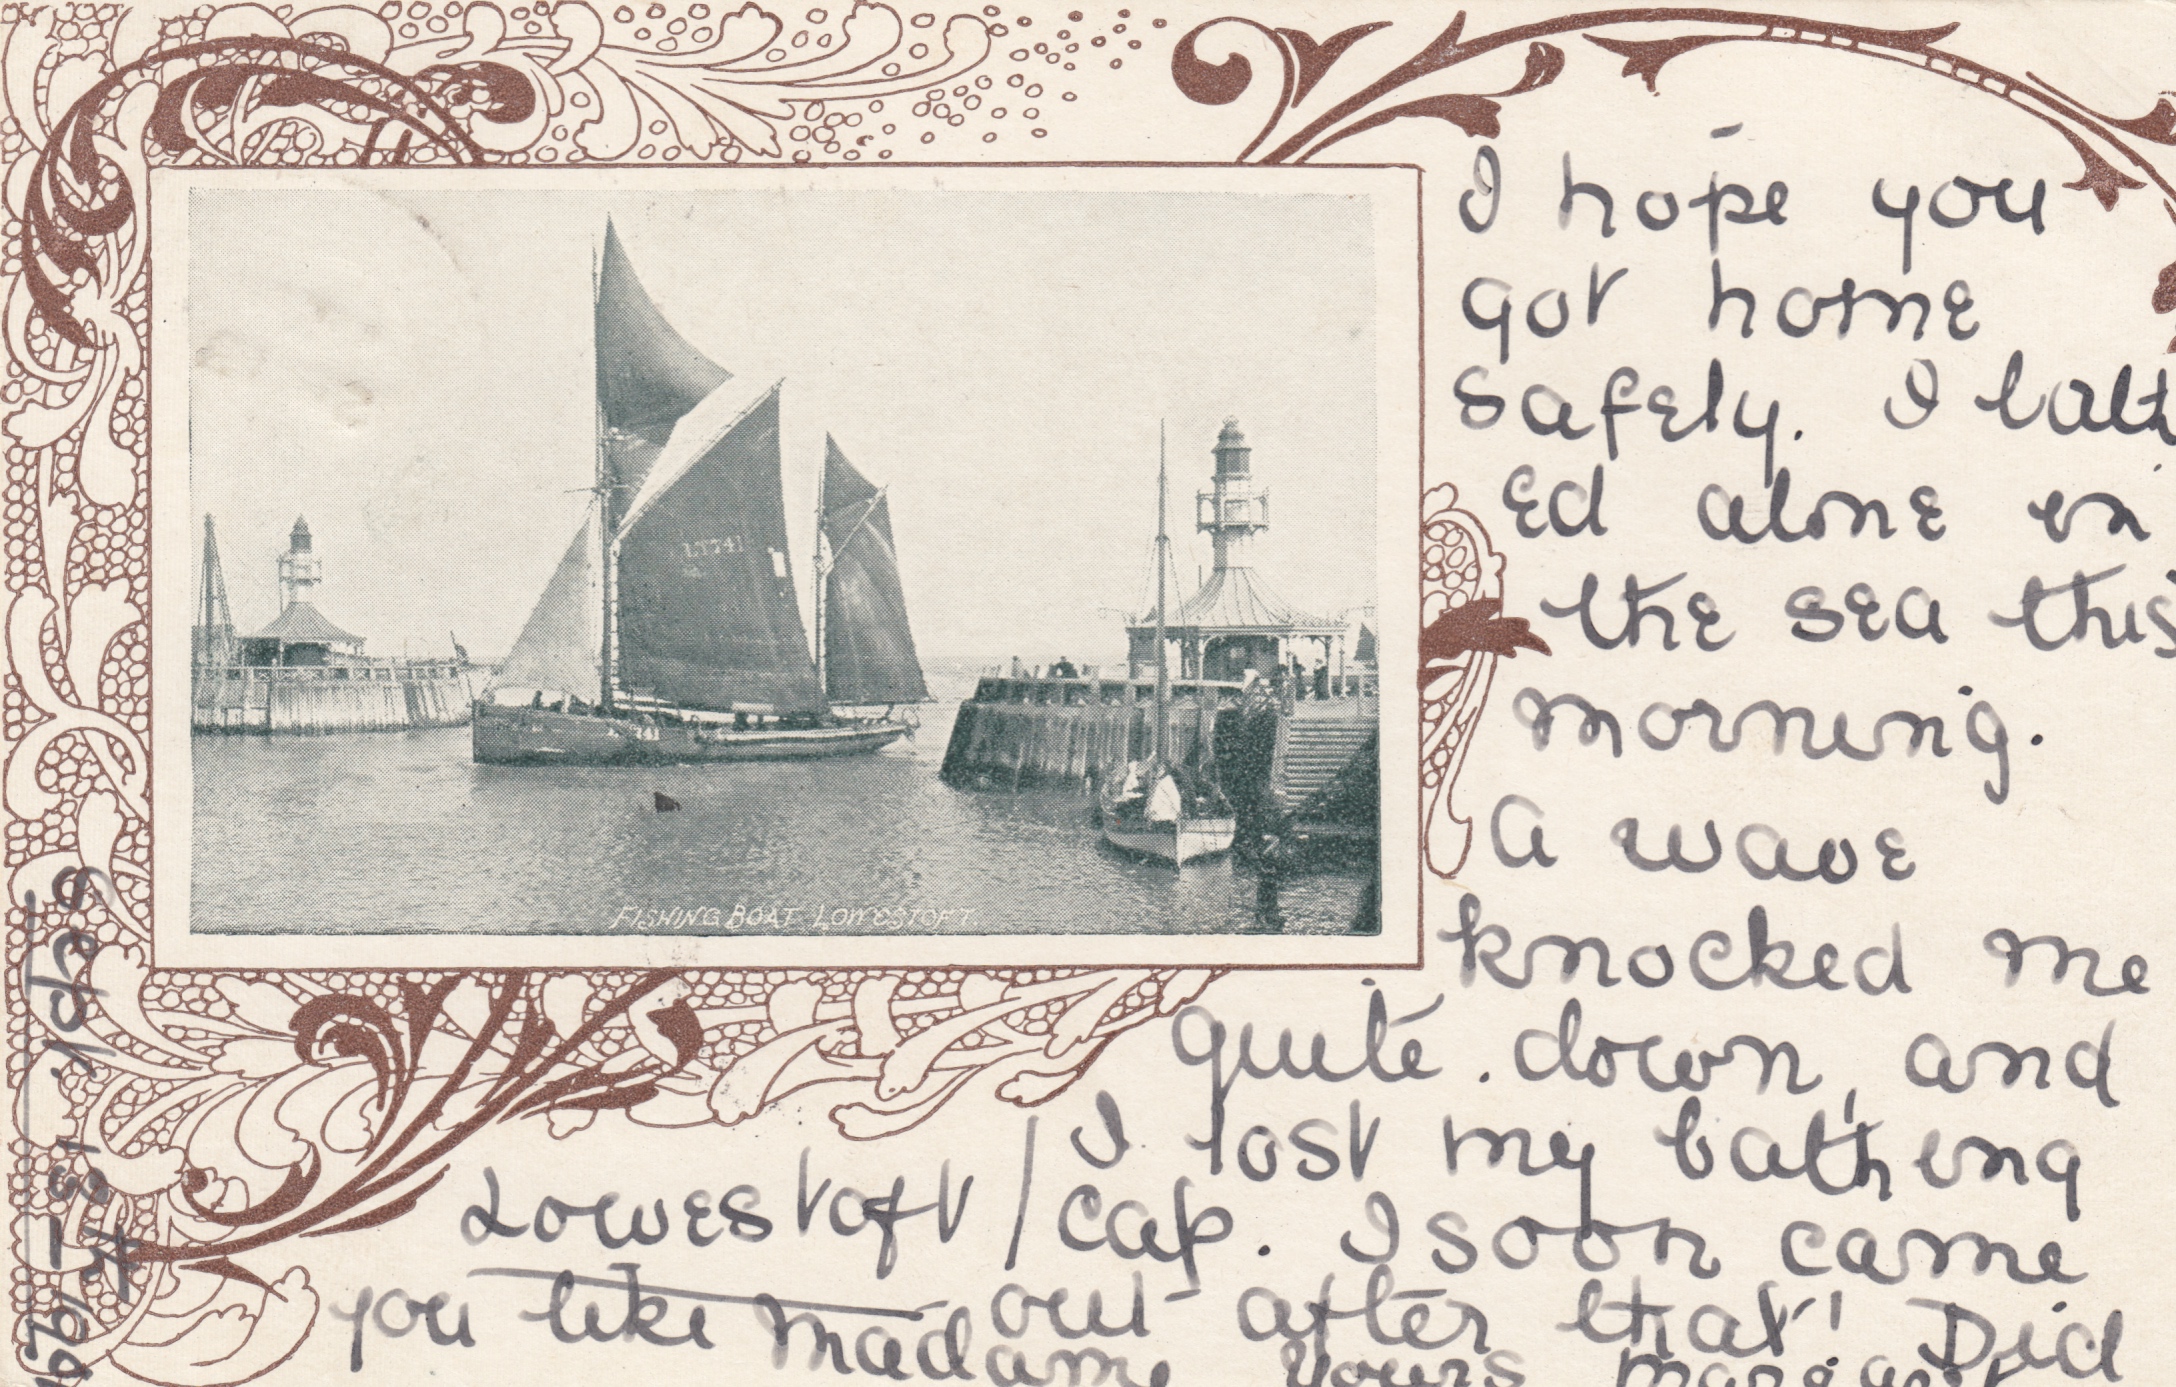 I hope you
got home
safely. I bath
ed alone in
the sea this
morning.
a wave
knocked me
quite down, and
I lost my bathing
cap. I soon came
out after that! Did
you like Madame
yours Margaret
Lowestoft
LT741
741
FISHING BOAT, LOWESTOFT.